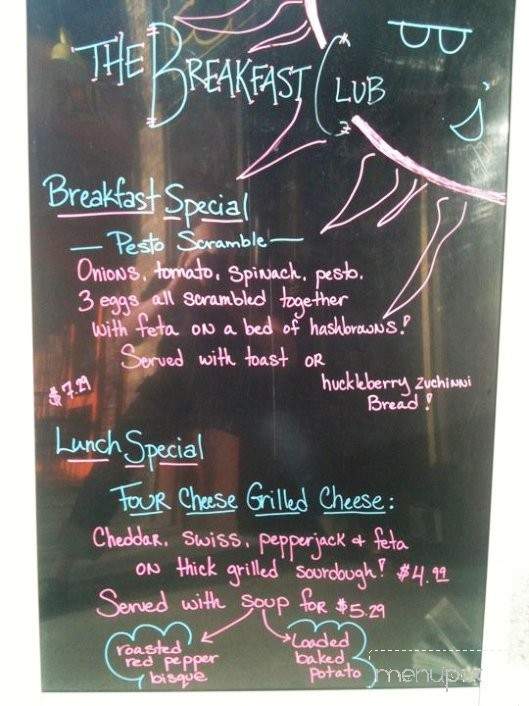 THE BREAKFAST CLUB
Breakfast Special
— Pesto Scramble —
Onions, tomato, spinach, pesto,
3 eggs all scrambled together
with feta on a bed of hashbrowns!
Served with toast or
huckleberry zuchinni
Bread!
$7.29
Lunch Special
Four Cheese Grilled Cheese:
Cheddar, swiss, pepperjack & feta
on thick grilled sourdough! $4.99
Served with soup for $5.29
roasted
red pepper
bisque
Loaded
baked
potato